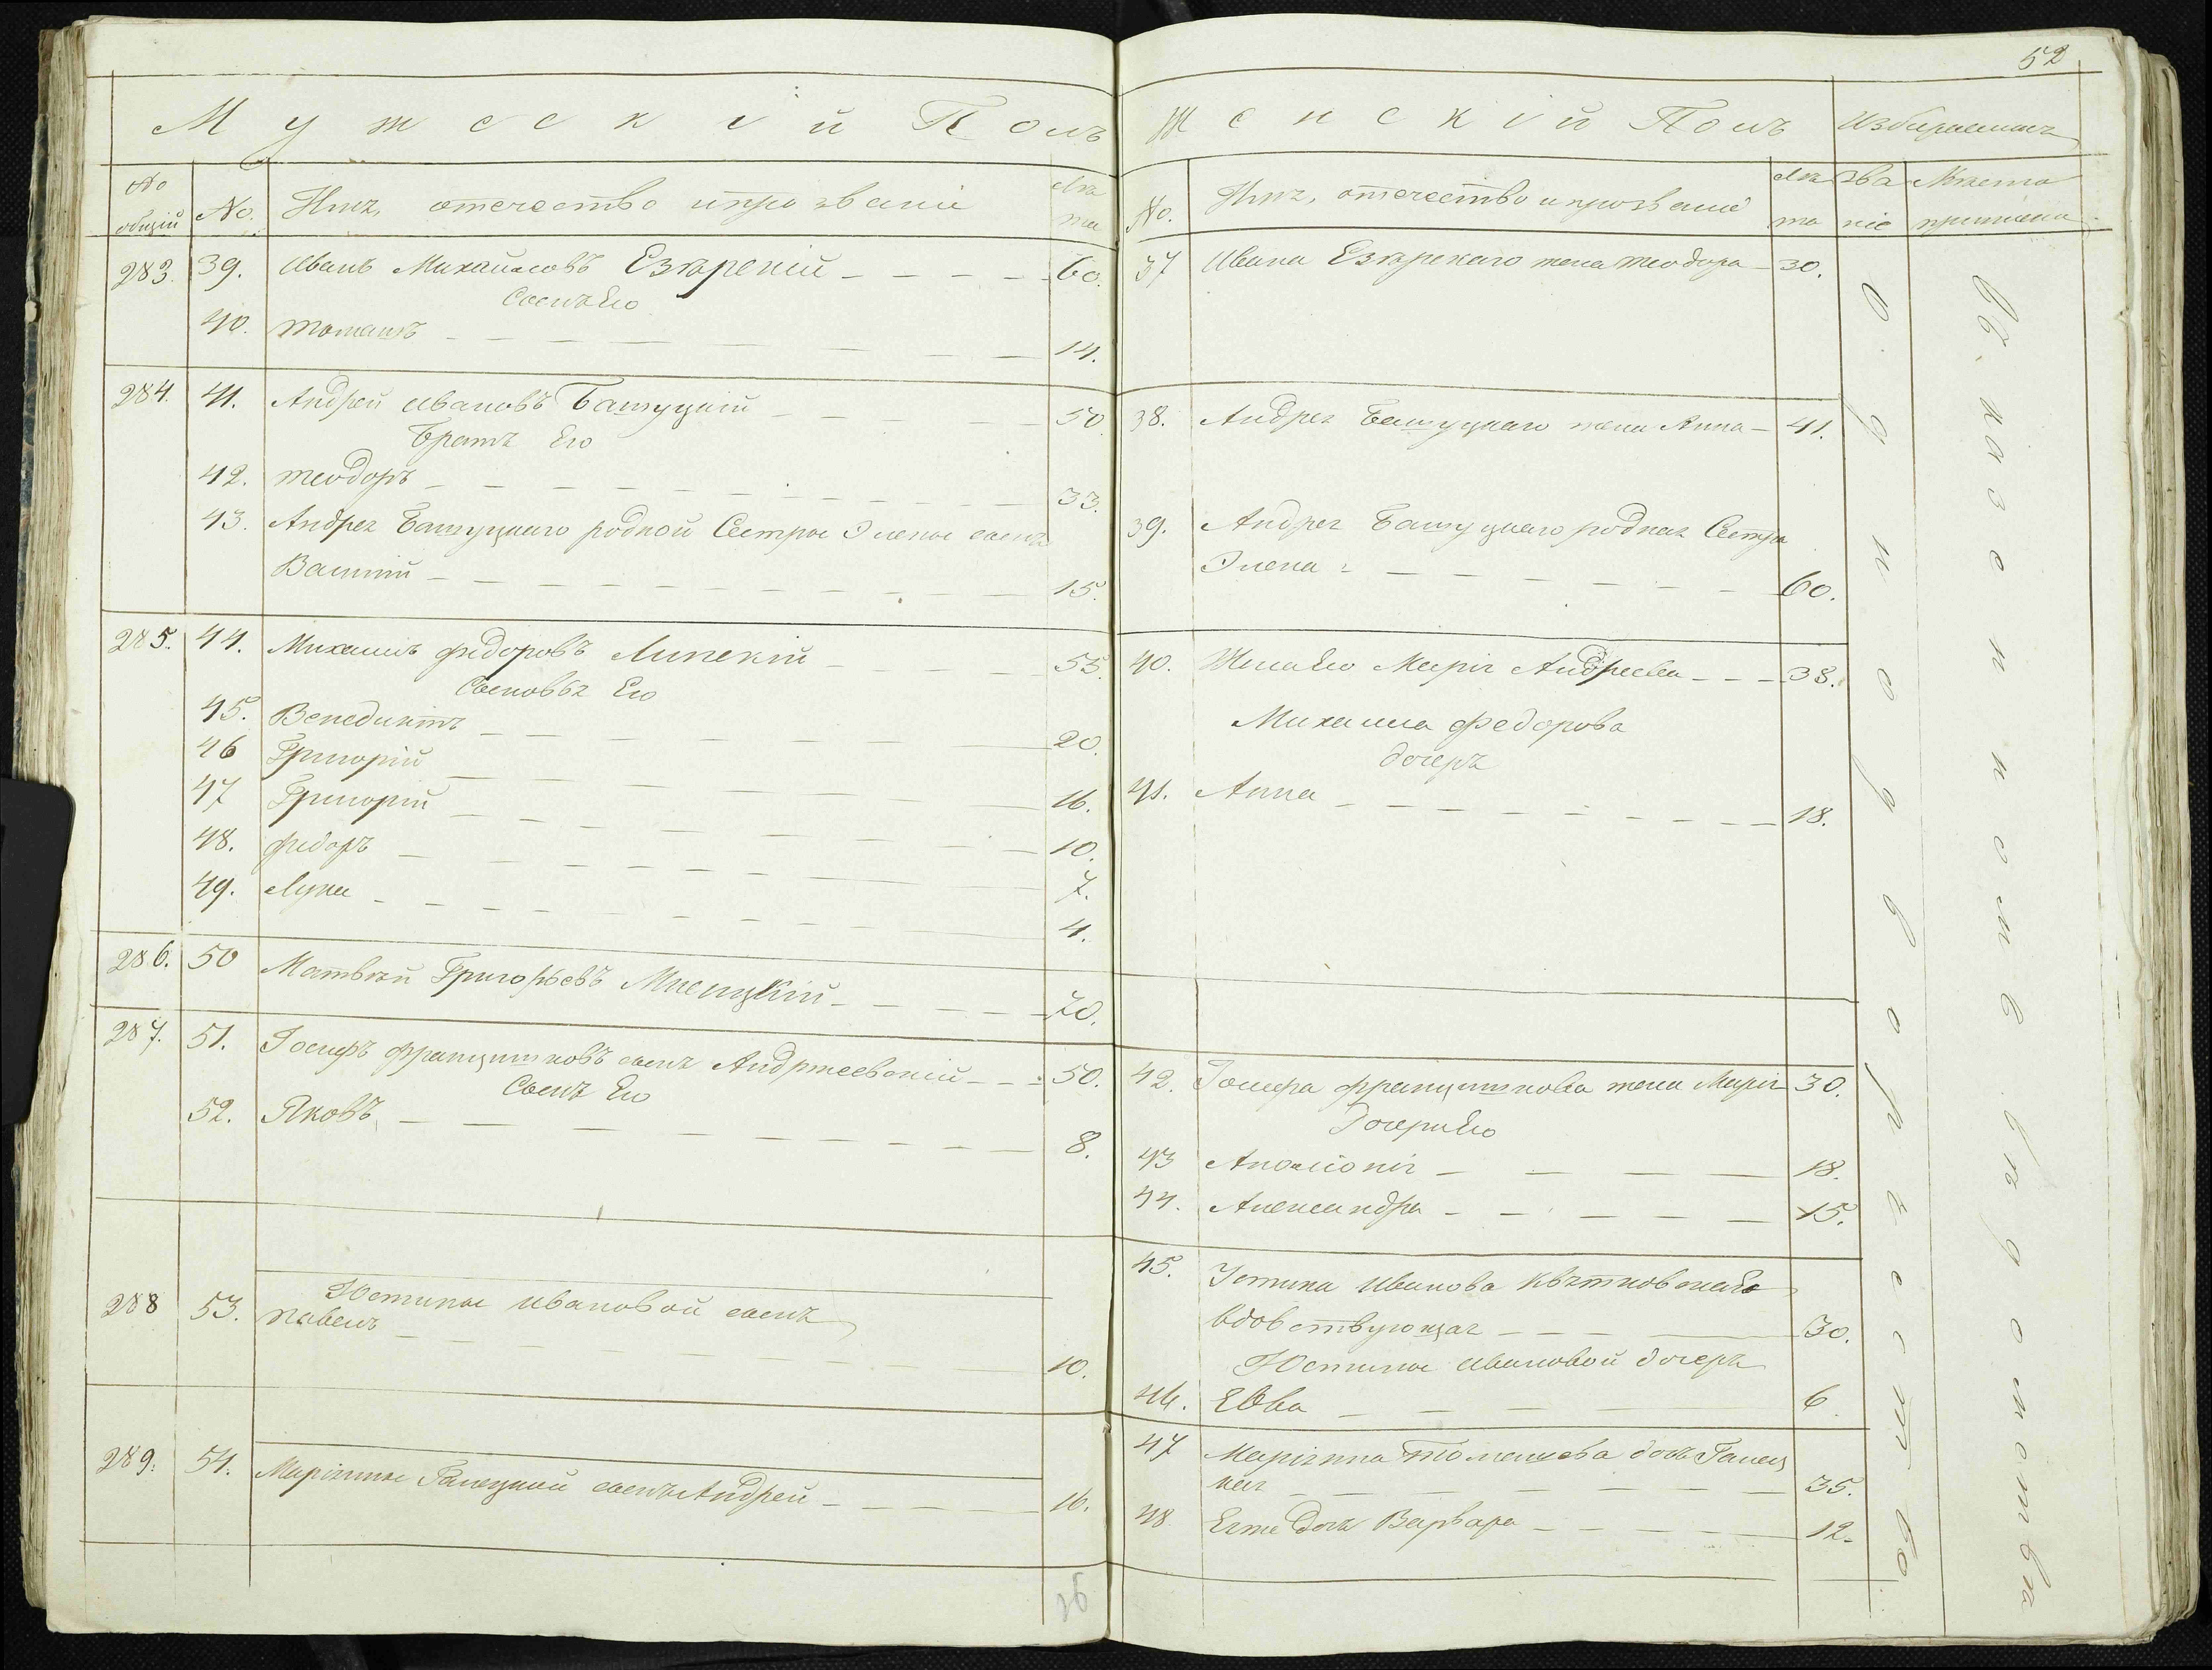 52
Мужескій Полъ
№ общій
№.
Имя, отечество и прозваніе
Лѣта
283. 39. Иванъ Михайловъ Езярскій 60.
Сынъ Его
40. Томашъ 14.
284. 41. Андрей Ивановъ Башуцкій 50
Братъ Его
42. Теодоръ 33.
43. Андрея Башуцкаго родной Сестры Элены сынъ
15.
285. 44. Михаилъ Федоровъ Липскій 55.
Сыновья Его
45. Венедиктъ 20.
46 Григорій 16.
47 Григорій 10.
48. Федоръ 7.
49. Лука 4.
286. 50 Матвѣй Григорьевъ 70.
287. 51. Іосифъ Францишковъ сынъ Андржеевскій 50.
Сынъ Его
52. Яковъ 8.
288 53. Юстины Ивановой сынъ
Павелъ 10.
289. 54. Маріянны Галецкой сынъ Андрей 16.
26
Женскій Полъ
Избираемыя
№.
Имя, отечество и прозваніе
Лѣта
Званіе
Мѣста
37 Ивана Езярскаго жена Теодора 30.
38. Андрея Башуцкаго жена Анна 41.
39. Андрея Башуцкаго родная Сестра
Элена 60.
40. Жена Его Марія Андреева 38.
Михаила Федорова
дочерь
41. Анна 18.
42. Іосифа Францишкова жена Марія 30.
Дочери Его
43 Аполіонія 18.
44. Александра 15.
45. Устина Иванова
вдовствующая 30.
Юстины Ивановой дочерь
46. Евва 6.
47 Маріянна Томашева дочь Галец
кая 35.
48 Ея же дочь Варвара 12.
однодворчество